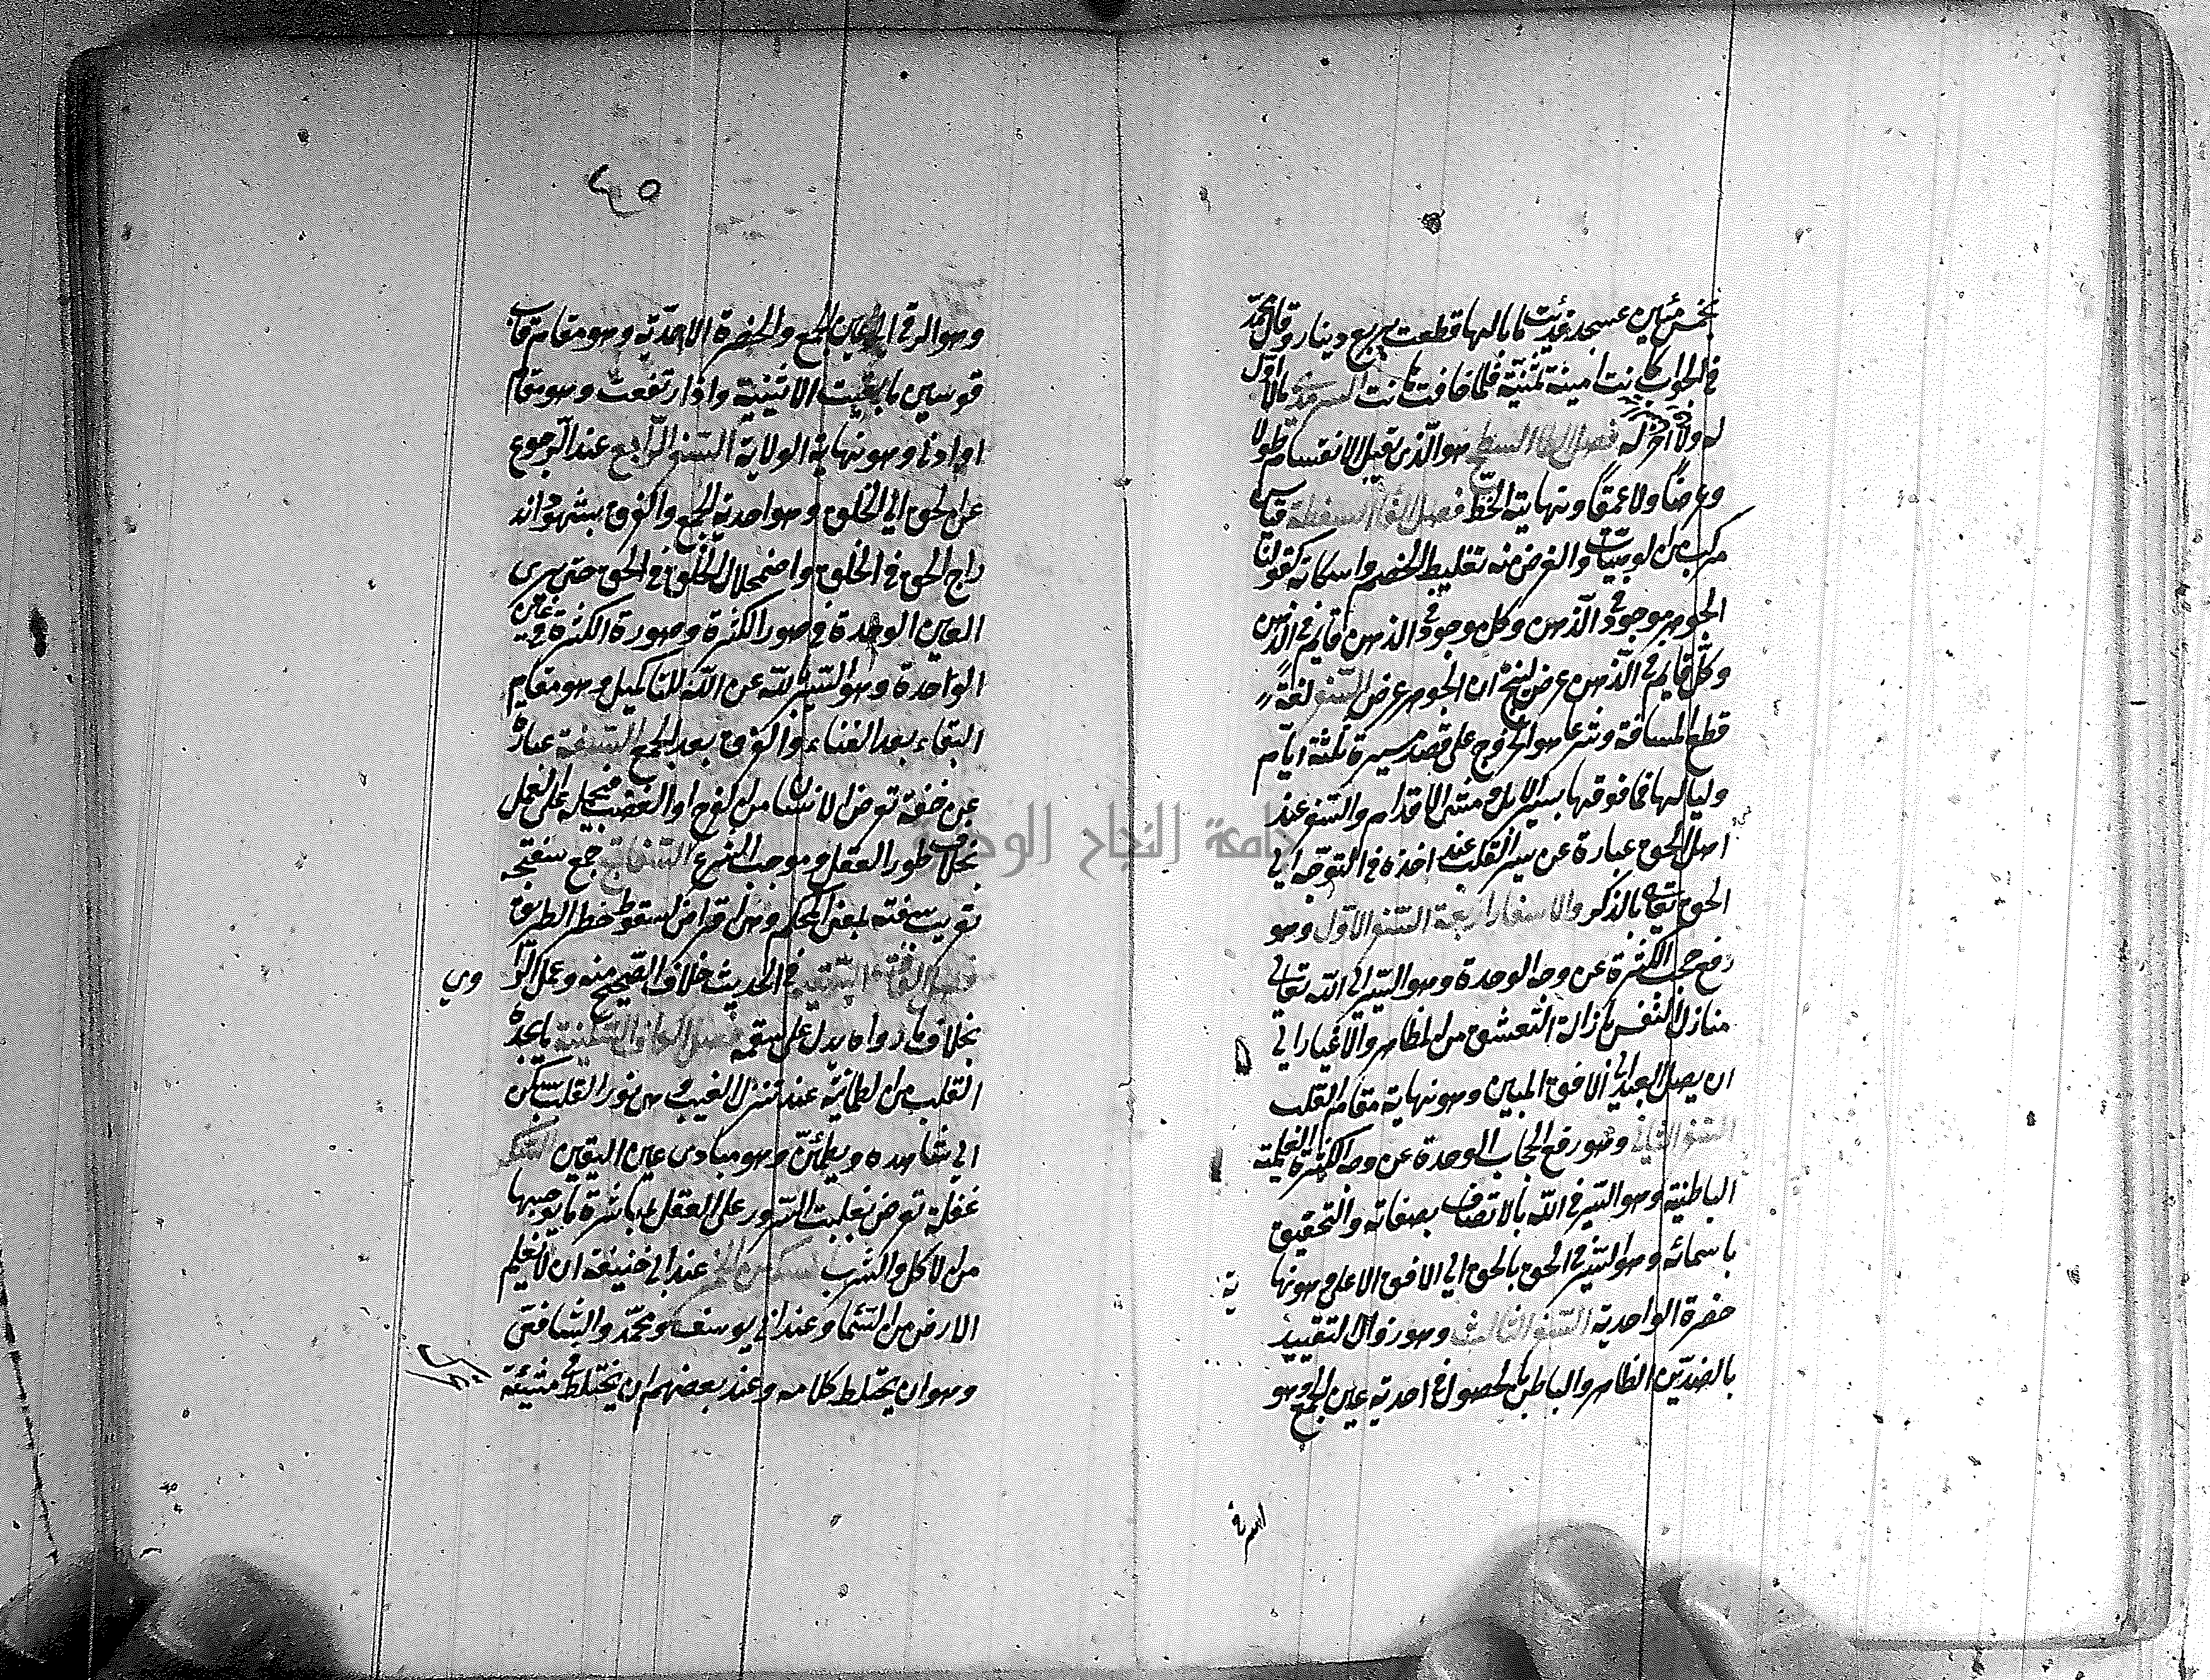 بخمس مئين عسجد فديت ما بالها قطعت بربع دينار وقال محمد
في الجواب كانت امينة ثمينة فلما خانت هانت السرمدي مالا اول
له ولا آخر له فصل الطا السطح هو الذي يقبل الانقسام طولا
وعرضا ولا عمقا ونهايته الخط فصل الفا السفسطة قياس
مركب من الوهميات والغرض منه تغليط الخصم واسكاته كقولنا
الجوهر موجود في الذهن وكل موجود في الذهن قايم في الذهن
وكل قايم في الذهن عرض لينتج ان الجوهر عرض السفر لغة
قطع المسافة وشرعا هو الخروج على قصد مسيرة ثلثة ايام
ولياليها فما فوقها بسير الابل ومشي الاقدام والسفر عند
اهل الحق عبارة عن سير القلب عند اخذه في التوجه الى
الحق تعالى بالذكر والاسفار اربعة السفر الاول وهو
رفع حجب الكثرة عن وجه الوحدة وهو السير الى الله تعالى
منازل النفس بازالة التعشق من المظاهر والاغيار الى
ان يصل العبد الى الافق المبين وهو نهاية مقام القلب
السفر الثاني وهو رفع الحجاب الوحدة عن وجه الكثرة العلمية
الباطنية وهو السير في الله بالاتصاف بصفاته والتحقيق
باسمائه وهو السير في الحق بالحق الى الافق الاعلى وهو نها
ية
حضرة الواحدية السفر الثالث وهو زوال التقييد
بالضدين الظاهر والباطن بالحصول في احدية عين الجمع وهو
٤٥
وهو الترقي الى عين الجمع والحضرة الاحدية وهو مقام قاب
قوسين ما بقيت الاثنينية واذا ارتفعت وهو مقام
او ادنا وهو نهاية الولاية السفر الرابع عند الرجوع
عن الحق الى الخلق وهو احدية الجمع والفرق بشهود اند
راج الحق في الخلق واضمحلال الخلق في الحق حتى يرى
العين الوحدة في صور الكثرة وصورة الكثرة في عين
الواحدة وهو السير لله عن الله للتاكميل وهو مقام
البقاء بعد الفناء والفرق بعد الجمع السفه عبارة
عن خفة تعرض الانسان من الفرح او الغضب فيحمله على العمل
بخلاف طور العقل وموجب الشرع السفاتج جمع سفتجه
تعريب سفته بمعنى المحكم وهي اقراض لسقوط خطر الطريق
فصل القاف السقيم في الحديث خلاف الصحيح منه وعمل الرا وي
بخلاف ما رواه يدل على سقمه فصل الكاف السكينة ما يجده
القلب من الطمانينة عند تنزل الغيب وهي نور القلب يسكن
الى شاهده ويطمئن وهو مبادى عين اليقين السكر
غفلة تعرض بغلبت السرور على العقل لمباشرة ما يوجبها
من الاكل والشرب السكر من الخمر عند ابي حنيفة ان لا يعلم
الارض من السما وعند ابي يوسف ومحمد والشافعي
وهو ان يختلط كلامه وعند بعضهم ان يختلط في مشيته
جامعة النجاح الوطنية